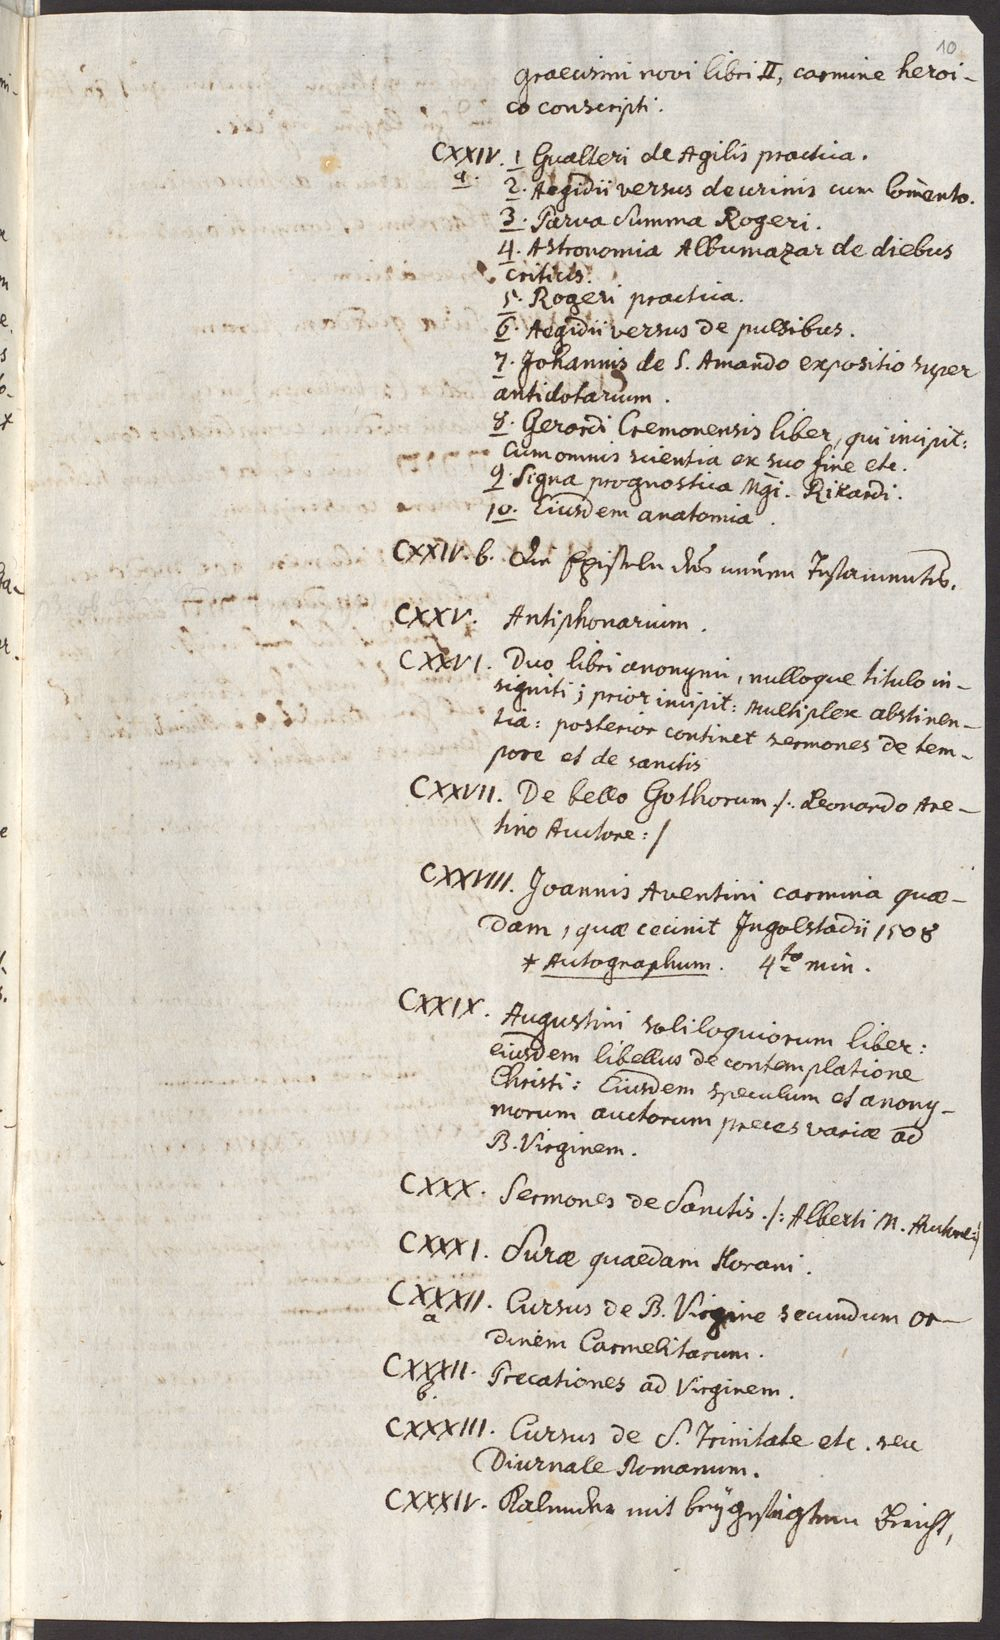 10
graecismi novi libri II, carmine heroi-
co conscripti.
CXXIV. 1 Gualteri de Agilis practica.
a. 2. Aegidii versus de urinis cum Com̄ento.
3. Parva Summa Rogeri.
4. Astronomia Albumazar de diebus
criticis.
5. Rogeri practica.
6. Aegidii versus de pulsibus.
7. Johannis de S. Amando expositio super
antidotarium.
8. Gerardi Cremonensis liber, qui incipit:
Cum omnis scientia ex suo fine etc.
9. Signa prognostica Mgi. Rikardi.
10. Eiusdem anatomia.
CXXIV. b. Die Episteln des neuen Testamentes.
CXXV. Antiphonarium.
CXXVI. Duo libri anonymi, nulloque titulo in-
signiti; prior incipit: Multiplex abstinen-
tia: posterior continet sermones de tem-
pore et de sanctis
CXXVII. De bello Gothorum /: Leonardo Are-
tino Autore :/
CXXVIII. Joannis Aventini carmina quæ-
dam, quæ cecinit Ingolstadii 1508
* Autographum. 4to min.
CXXIX. Augustini soliloquiorum liber:
eiusdem libellus de contemplatione
Christi: Eiusdem speculum et anony-
morum auctorum preces variæ ad
B. Virginem.
CXXX. Sermones de Sanctis. /: Alberti M. Autore :/
CXXXI. Suræ quaedam Korani.
CXXXII. Cursus de B. Virgine secundum or-
a dinem Carmelitarum.
CXXXII. Precationes ad Virginem.
b.
CXXXIII. Cursus de S. Trinitate etc. seu
Diurnale Romanum.
CXXXIV. Kalender mit beÿgefügtem Bericht,